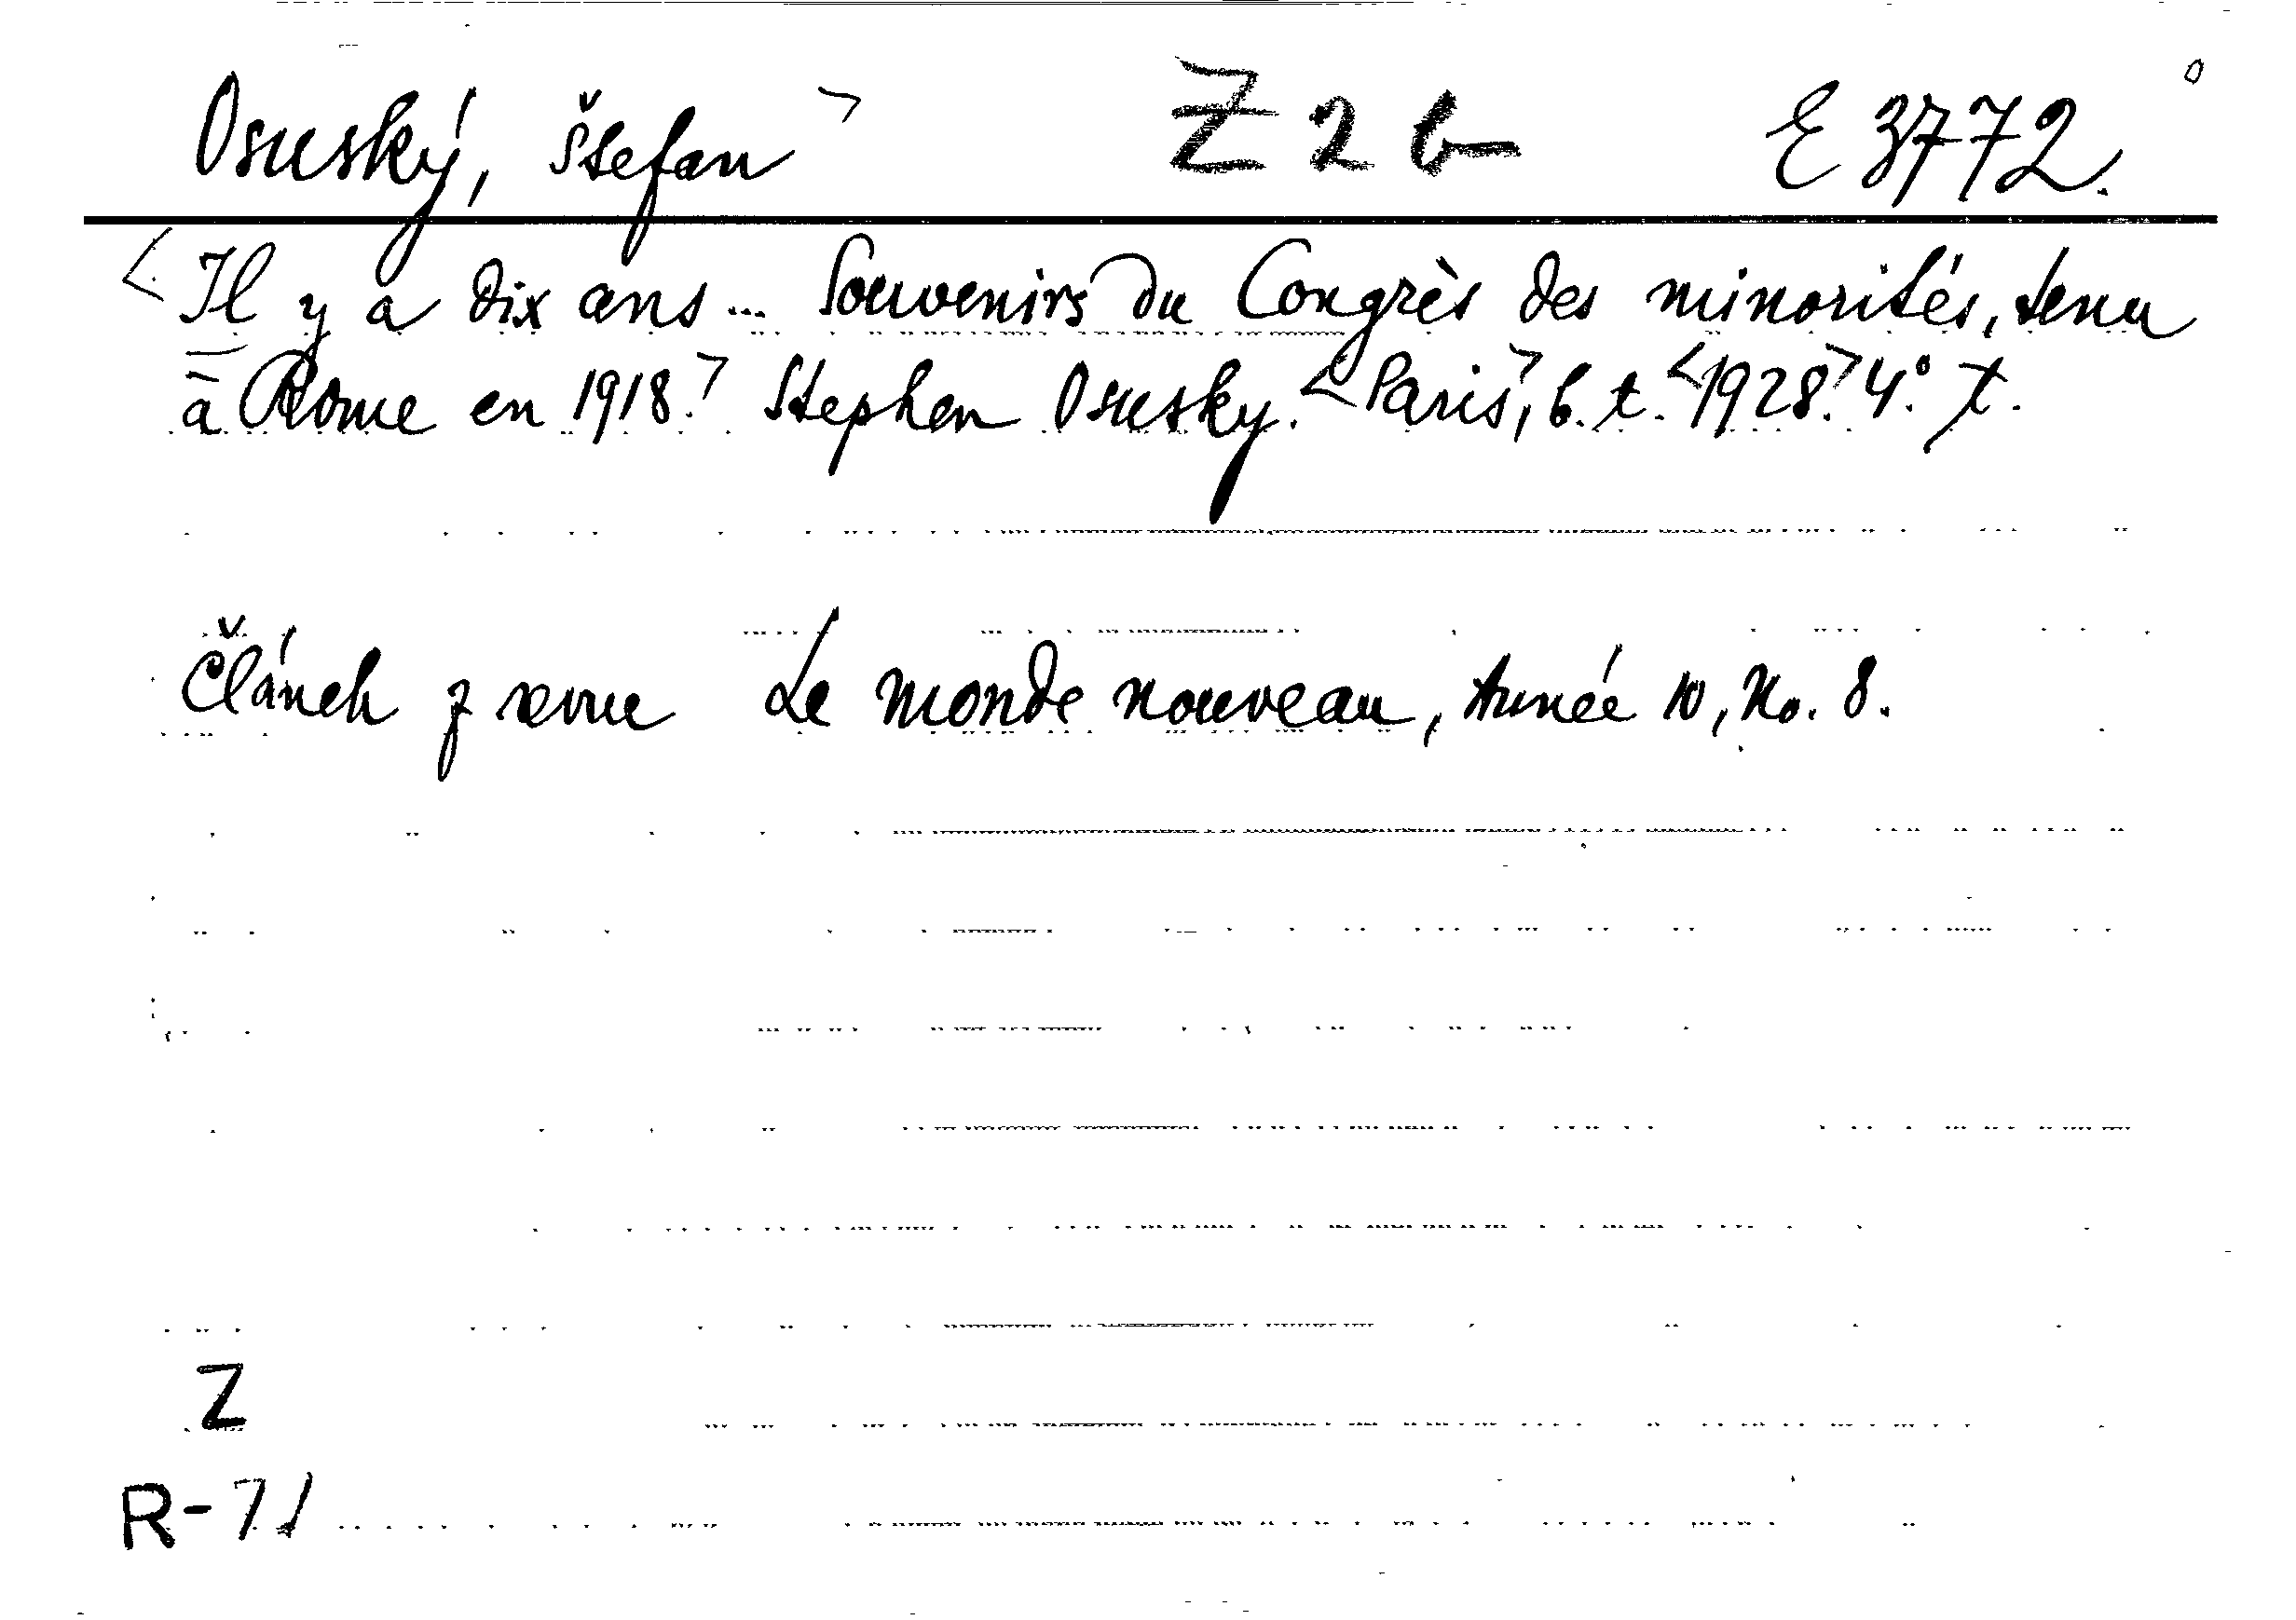 Osuský, Štefan> Z 2 b E 3772.
<Il y a dix ans... Souvenirs du Congrès des minorités, tenu
à Rome en 1918.> Stephen Osusky. <Paris>, b. t. <1928.> 4° X.
Článek z revue Le monde nouveau, Année 10, No. 8.
Z
R-71